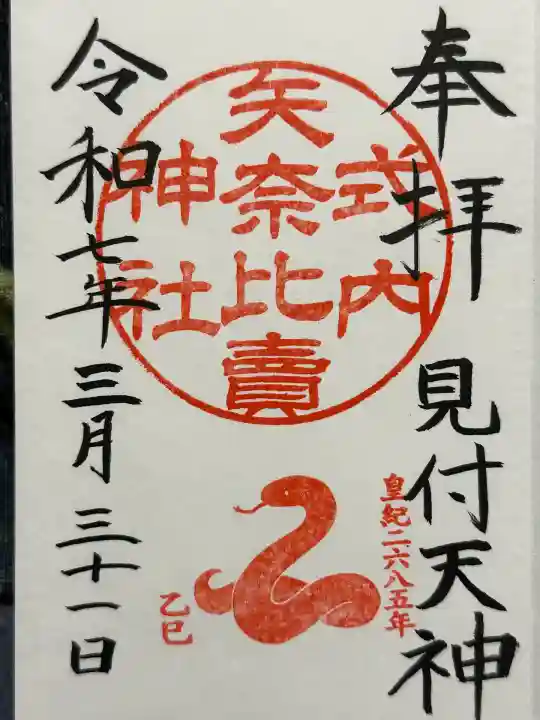 奉拝 見付天神
式内
矢奈比賣
神社
皇紀二六八五年
乙巳
令和七年三月三十一日